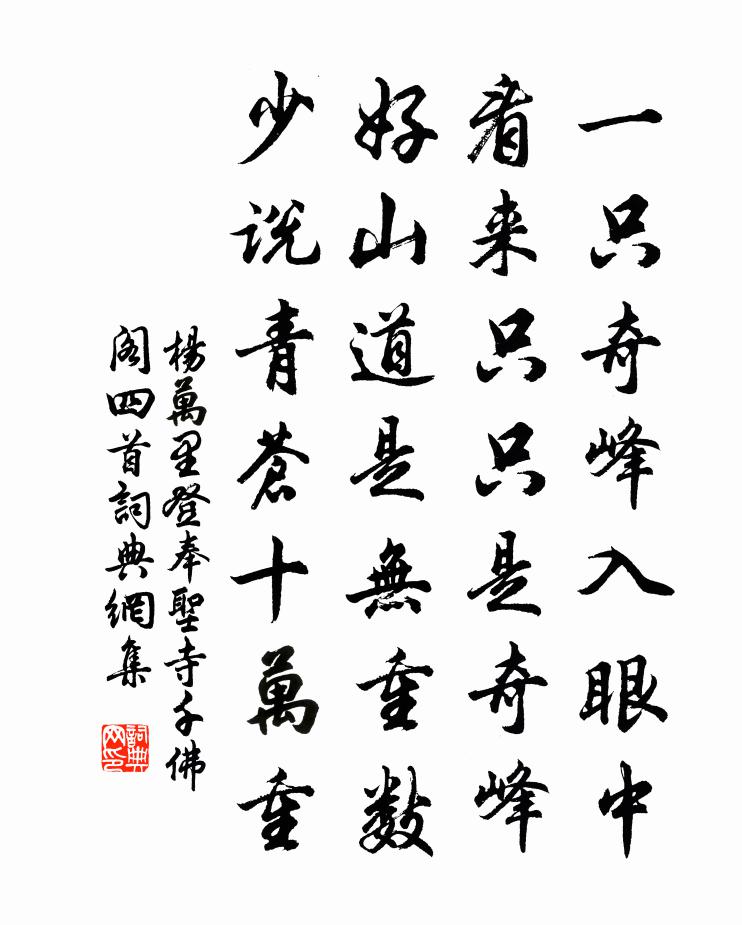 一只奇峰入眼中
看来只只是奇峰
好山道是無重数
少说青蒼十萬重
楊萬里登奉聖寺千佛
阁四首詞典網集
詞典
网印